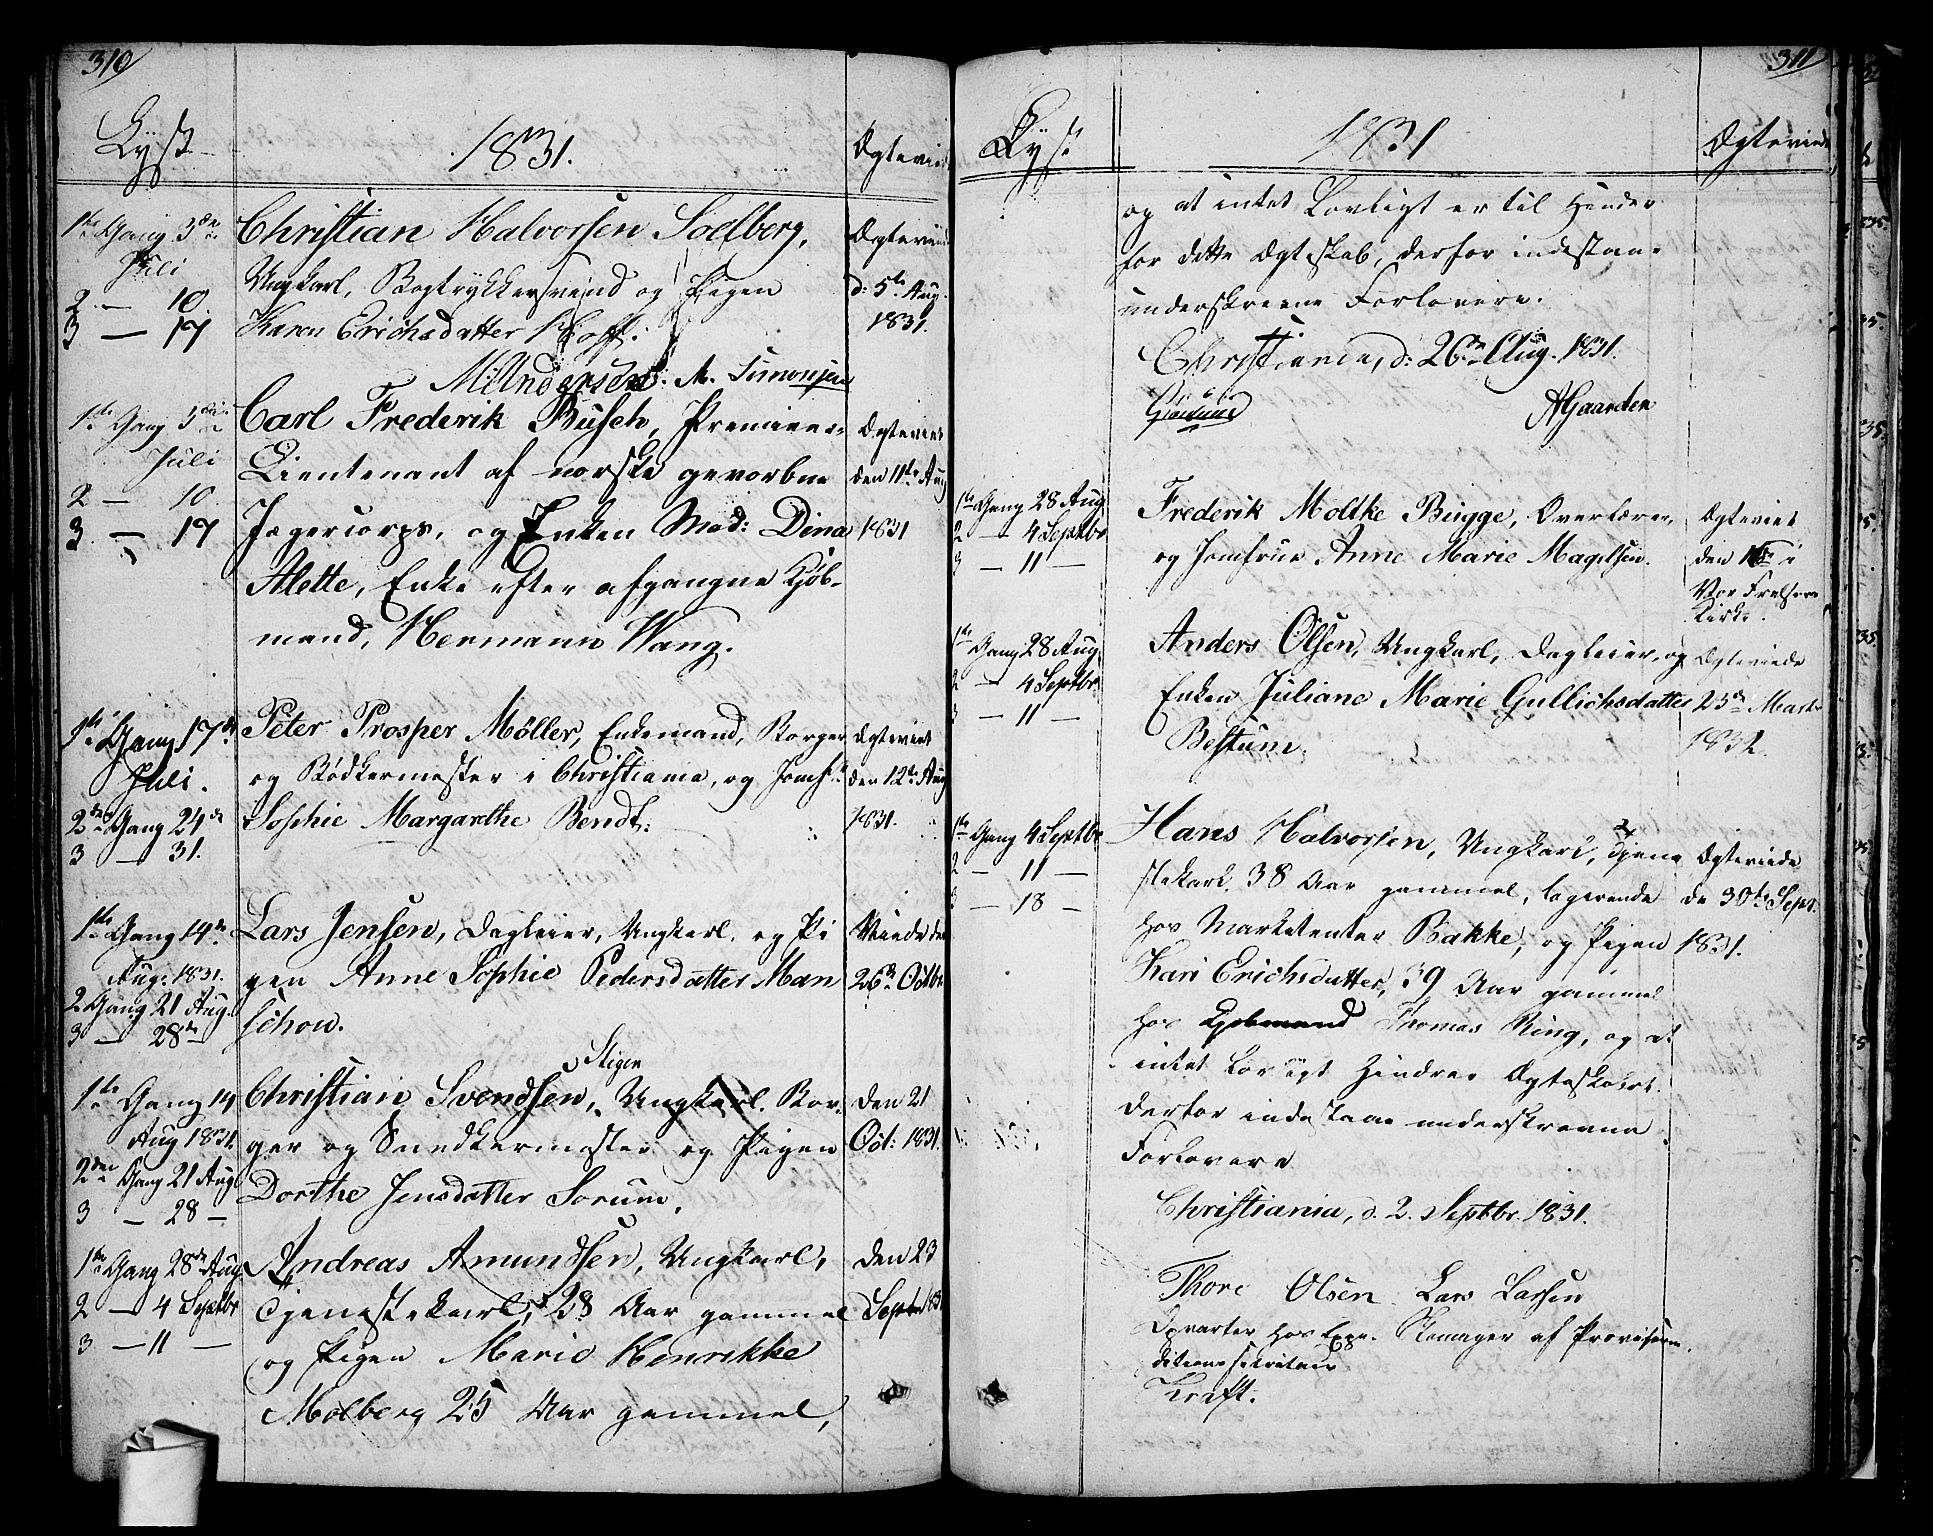 310
Lyst
1831.
Ægteviede
1te Gang 3die Juli
2 — 10.
3 — 17
Christian Halvorsen Soelberg,
Ungkarl, Bogtrykkersvend og Pigen
Karen Erichsdatter Hoff.
M. Andersen. M. Simonsen
Ægteviede
d: 5te Aug.
1831.
1te Gang 3die
Juli
2 — 10.
3 — 17
Carl Frederik Busch, Premier-
Lieutenant af norske gevorbne
Jægercorps, og Enken Mad: Dina
Alette, Enke efter afgangne Kjøb-
mand, Hermann Wang.
Ægteviet
den 11te Aug
1831
1te Gang 17de
Juli.
2den Gang 24de
3 — 31.
Peter Prosper Møller, Enkemand, Borger
og Bødkermester i Christiania, og Jomfr:
Sophie Margarethe Bendt.
Ægteviet
den 12te Aug
1831.
1te Gang 14de
Aug: 1831.
2 Gang 21 Aug.
3 — 28de
Lars Jensen, Dagleier, Ungkarl. og Pi
gen Anne Sophie Pedersdatter Man
schou.
Viede den
26de Octbr
1te Gang 14
Aug 1831.
2den Gang 21 Aug.
3 — 28 —
Stigen
Christian Svendsen, Ungkarl. Bor-
ger og Snedkermester og Pigen
Dorthe Jensdatter Sorum.
Den 21
Oct: 1831.
1te Gang 28de Aug.
2 — 4 Septbr
3 — 11 —
Andreas Amundsen, Ungkarl,
Tjenestekarl, 28 Aar gammel
og Pigen Marie Henrikke
Molberg 25 Aar gammel,
Den 23
Septr 1831
311
Lyst
1831
Ægteviede
og at intet Lovligt er til Hinder
for dette Ægteskab, derfor indestaae
underskrevne Forlovere.
Christiania, d: 26de Aug. 1831.
A Gaarder
1te Gang 28 Aug
2 — 4 Septbr
3 — 11 —
Frederik Moltke Bugge, Overlærer,
og Jomfrue Anne Marie Magelsen.
Ægteviet
den i
Vor Frelsers
Kirke.
1te Gang 28 Aug.
2 — 4 Septbr.
3 — 11 —
Anders Olsen, Ungkarl, Dagleier, og
Enken Juliane Marie Gullichsdatter
Bestum.
Ægteviede
23de Marts
1832.
1te Gang 4 Septbr
2 — 11 —
3 — 18 —
Hans Halvorsen, Ungkarl, Tjene
stekarl, 38 Aar gammel, logerende
hos Marketenter Bakke, og Pigen
Kari Erichsdatter, 39 Aar gammel
hos Kjøbmand Thomas Ring, og at
intet Lovligt hindrer Ægteskabet.
Derfor indestaae underskrevne
Forlovere
Christiania, d. 2. Septbr. 1831.
Ægteviede
de 30te Sept.
1831.
Thore Olsen Lars Larsen
Opvarter hos Expe-
ditionssecretair
Kraft.